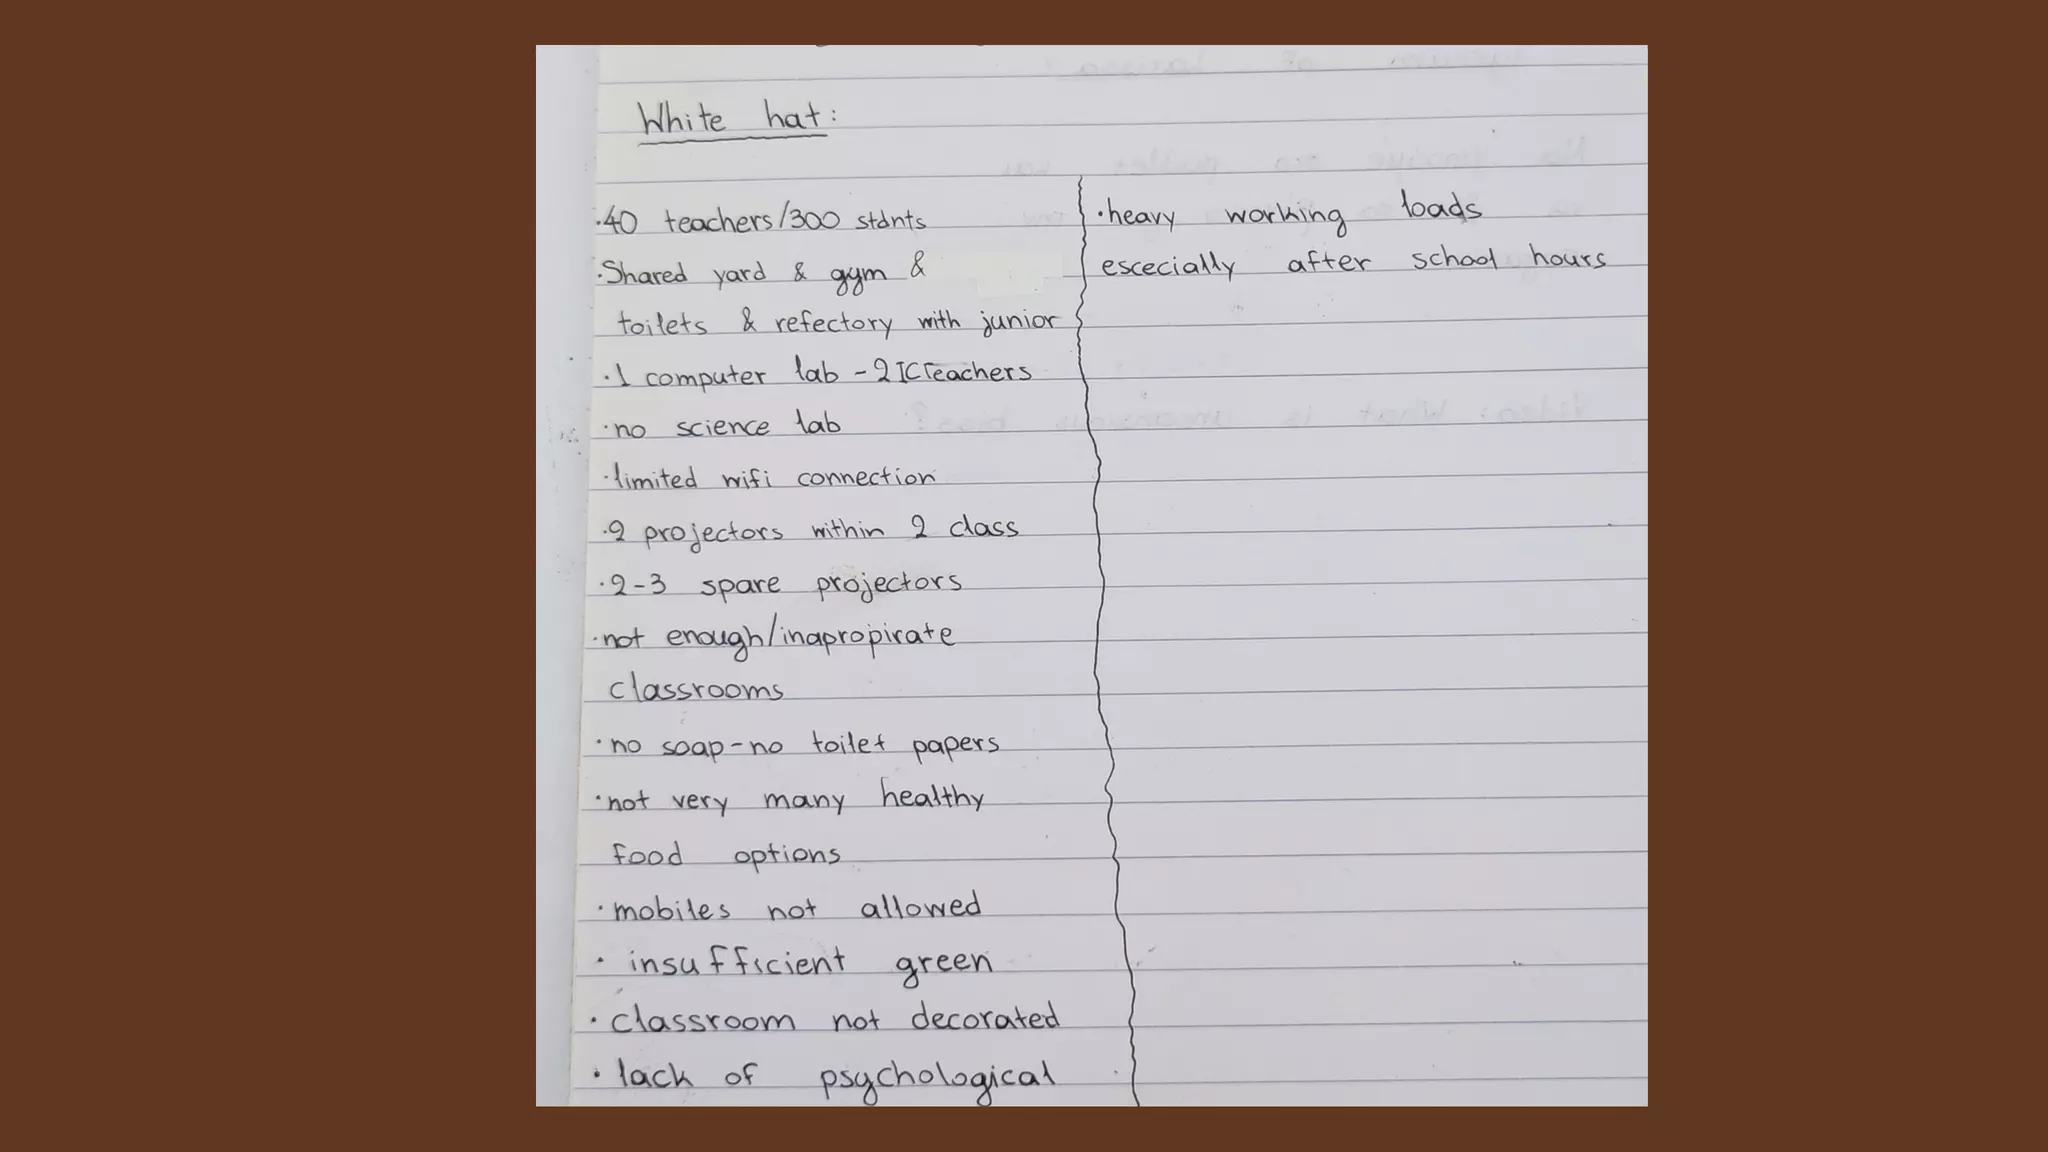 White hat:
·40 teachers/300 stdnts
·Shared yard & gym &
toilets & refectory with junior
·1 computer lab - 2 ICTeachers
·no science lab
·limited wifi connection
·2 projectors within 2 class
·2-3 spare projectors
·not enough/inapropirate
classrooms
·no soap-no toilet papers
·not very many healthy
food options
·mobiles not allowed
· insufficient green
· classroom not decorated
· lack of psychological
·heavy working loads
escecially after school hours